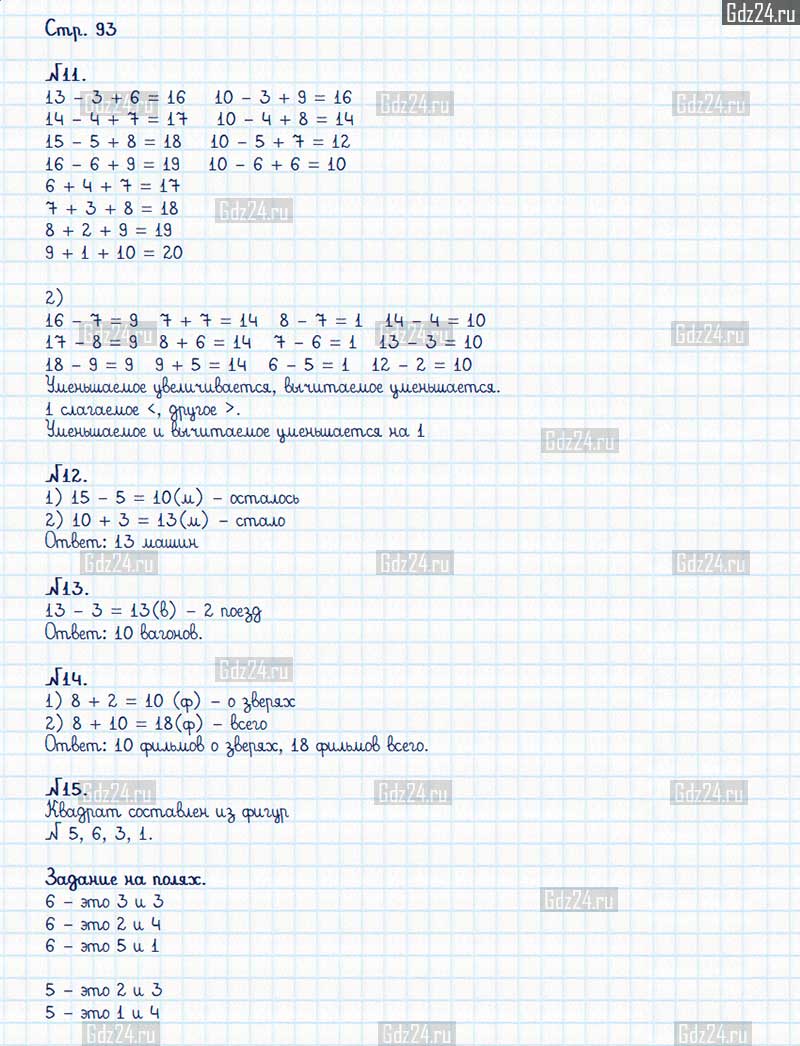 Gdz24.ru
Стр. 93
№11.
13 - 3 + 6 = 16 10 - 3 + 9 = 16
14 - 4 + 7 = 17 10 - 4 + 8 = 14
15 - 5 + 8 = 18 10 - 5 + 7 = 12
16 - 6 + 9 = 19 10 - 6 + 6 = 10
6 + 4 + 7 = 17
7 + 3 + 8 = 18
8 + 2 + 9 = 19
9 + 1 + 10 = 20
2)
16 - 7 = 9 7 + 7 = 14 8 - 7 = 1 14 - 4 = 10
17 - 8 = 9 8 + 6 = 14 7 - 6 = 1 13 - 3 = 10
18 - 9 = 9 9 + 5 = 14 6 - 5 = 1 12 - 2 = 10
Уменьшаемое увеличивается, вычитаемое уменьшается.
1 слагаемое <, другое >.
Уменьшаемое и вычитаемое уменьшается на 1
№12.
1) 15 - 5 = 10(м) - осталось
2) 10 + 3 = 13(м) - стало
Ответ: 13 машин
№13.
13 - 3 = 13(в) - 2 поезд
Ответ: 10 вагонов.
№14.
1) 8 + 2 = 10 (ф) - о зверях
2) 8 + 10 = 18(ф) - всего
Ответ: 10 фильмов о зверях, 18 фильмов всего.
№15.
Квадрат составлен из фигур
№ 5, 6, 3, 1.
Задание на полях.
6 - это 3 и 3
6 - это 2 и 4
6 - это 5 и 1
5 - это 2 и 3
5 - это 1 и 4